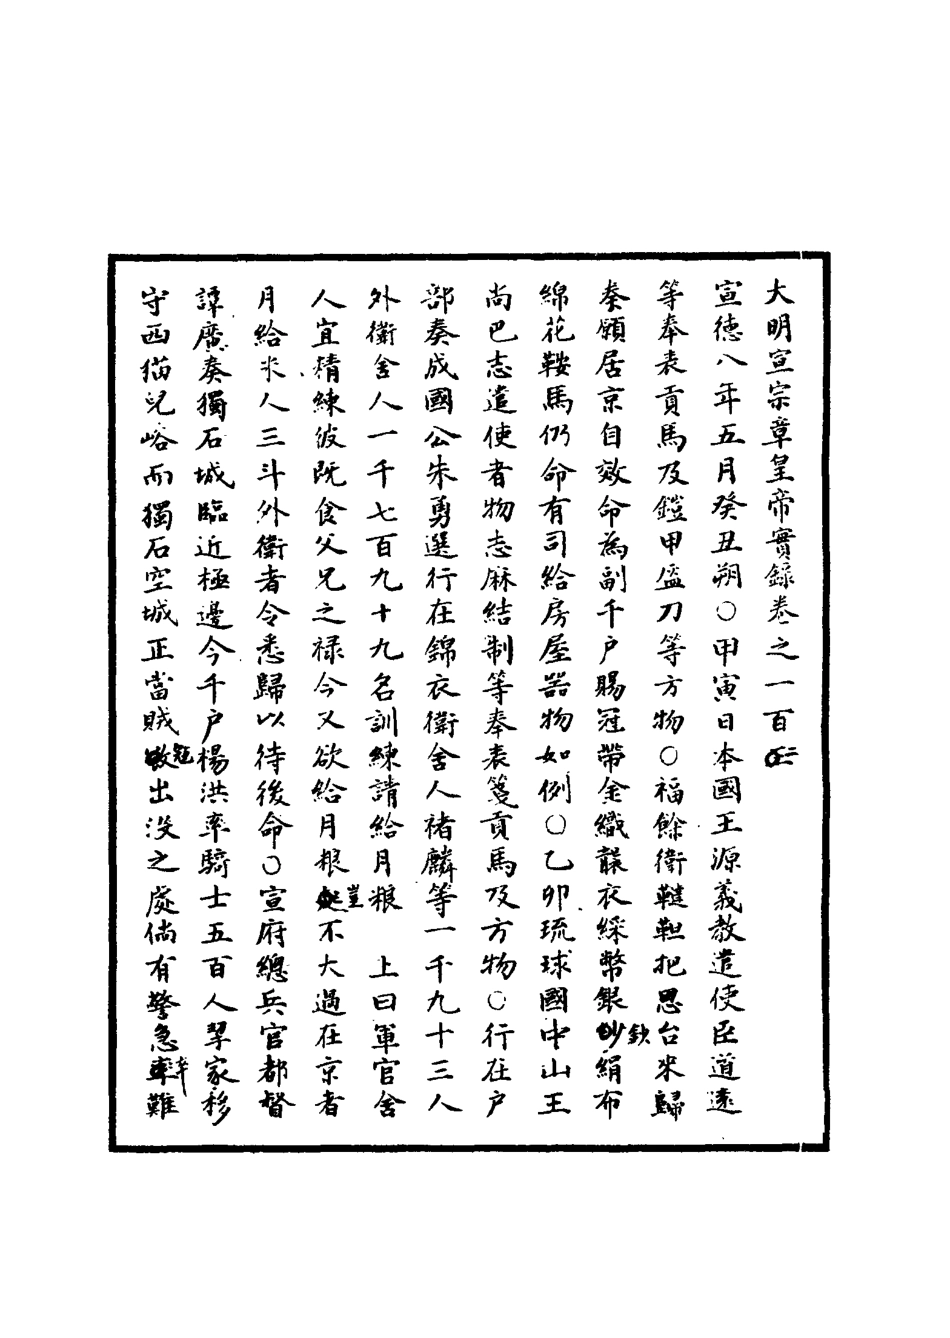 大明宣宗章皇帝實錄卷之一百二
宣德八年五月癸丑朔○甲寅日本國王源義教遣使臣道遠
等奉表貢馬及鎧甲盔刀等方物○福餘衛韃靼把思台來歸
奏願居京自效命為副千户賜冠帶金織襲衣綵幣銀鈔絹布
綿花鞍馬仍命有司給房屋器物如例○乙卯琉球國中山王
尚巴志遣使者物志麻結制等奉表箋貢馬及方物○行在户
部奏成國公朱勇選行在錦衣衛舍人禇麟等一千九十三人
外衛舍人一千七百九十九名訓練請給月粮 上曰軍官舍
人宜精練彼既食父兄之禄今又欲給月粮豈不大過在京者
月給米人三斗外衛者令悉歸以待後命○宣府總兵官都督
譚廣奏獨石城臨近極邊今千户楊洪率騎士五百人挈家移
守西猫兒峪而獨石空城正當賊寇出没之處倘有警急卒難